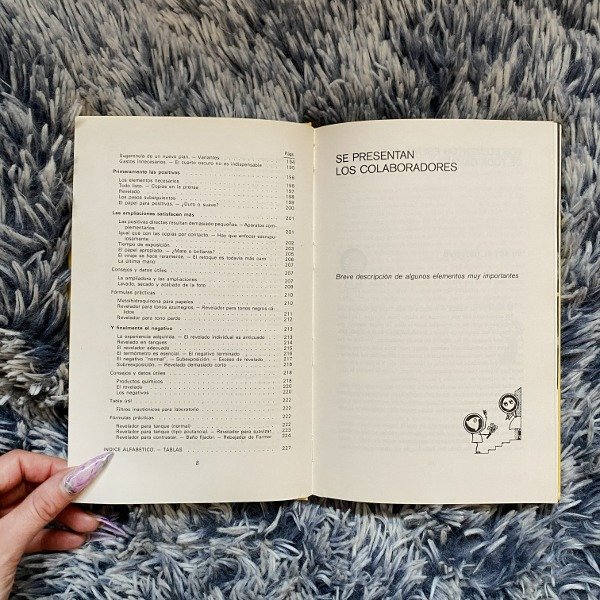 Págs.
Sugerencia de un nuevo plan. — Variantes 194
Gastos innecesarios. — El cuarto oscuro no es indispensable 195
Primeramente las positivas 196
Los elementos necesarios 196
Todo listo. — Copias en la prensa 198
Revelado 198
Los pasos subsiguientes 198
El papel para positivos. — ¿Duro o suave? 200
Las ampliaciones satisfacen más 201
Las positivas directas resultan demasiado pequeñas. — Aparatos com-
plementarios 201
Igual que con las copias por contacto. — Hay que enfocar escrupu-
losamente 202
Tiempo de exposición 203
El papel apropiado. — ¿Mate o brillante? 205
El viraje se hace raramente. — El retoque es todavía más raro 206
La última mano 207
Consejos y datos útiles 207
La ampliadora y las ampliaciones 207
Lavado, secado y acabado de la foto 209
Fórmulas prácticas 210
Metolhidroquinona para papeles 210
Revelador para tonos azulnegros. — Revelador para tonos negros cá-
lidos 211
Revelador para tono pardo 212
Y finalmente el negativo 213
La experiencia adquirida. — El revelado individual es anticuado 213
Revelado en tanques 214
El revelador adecuado 215
El termómetro es esencial. — El negativo terminado 216
El negativo "normal". — Subexposición. — Exceso de revelado 217
Sobreexposición. — Revelado demasiado corto 218
Consejos y datos útiles 218
Productos químicos 218
El revelado 220
Los negativos 220
Tabla útil 222
Filtros inactínicos para laboratorio 222
Fórmulas prácticas 222
Revelador para tanque (normal) 222
Revelador para tanque (tipo acutancia). — Revelador para suavizar 223
Revelador para contrastar. — Baño fijador. — Rebajador de Farmer 224
INDICE ALFABETICO. — TABLAS 227
8
SE PRESENTAN
LOS COLABORADORES
Breve descripción de algunos elementos muy importantes